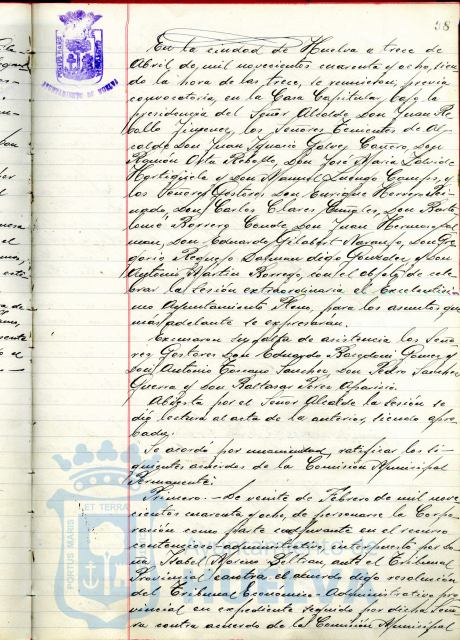 38
En la ciudad de Huelva a trece de
Abril de mil novecientos cuarenta y ocho, sien-
do la hora de las trece, se reunieron, previa
convocatoria, en la Casa Capitular bajo la
presidencia del Señor Alcalde Don Juan Re-
bollo Jimenez, los Señores Tenientes de Al-
calde Don Juan Ignacio Galvez Cañero, Don
Ramón Orta Rebollo, Don José María
y Don Manuel Luengo Campos, y
los Señores Gestores Don Enrique Herrera
Don Carlos Don Barto-
lomé Borrero Conde, Don Juan
Don Eduardo Gilabert Naranjo, Don Gre-
gorio Requejo digo Gonzalez y Don
Antonio Martin Borrego, con el objeto de cele-
brar la sesión extraordinaria el Excelentísi-
mo Ayuntamiento Pleno, para los asuntos que
más adelante se expresaran.
Excusaron su falta de asistencia los Seño-
res Gestores Don Eduardo Gomez y
Don Antonio Toscano Sanchez, Don Pedro Sanchez
Guerra y Don Baltasar Perez Aparicio.
Abierta por el Señor Alcalde la Sesión se
dió lectura al acta de la anterior, siendo apro-
bada.
Se acordó por unanimidad, ratificar los si-
guientes acuerdos de la Comisión Municipal
Permanente:
Primero.- De veinte de Febrero de mil nove-
cientos cuarenta y ocho, de personarse la Corpo-
ración como parte coadyuvante en el recurso
contencioso administrativo interpuesto por Do-
ña Isabel Moreno Beltran, ante el Tribunal
Provincial, contra el acuerdo digo resolución
del Tribunal Económico Administrativo pro-
vincial en expediente seguido por dicha Seño-
ra contra acuerdo de la Comisión Municipal
PORTUS MARIS
AYUNTAMIENTO DE HUELVA
PORTUS MARIS ET TERRA
Ayuntamiento de